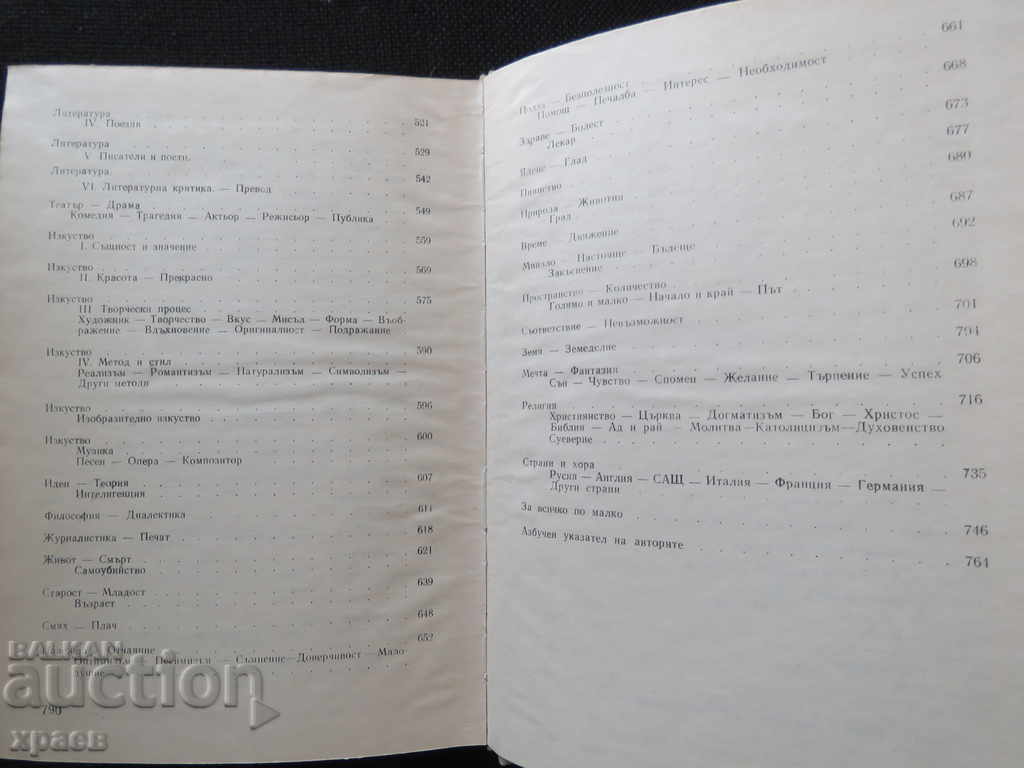 Литература
IV. Поезия 521
Литература
V. Писатели и поети. 529
Литература
VI. Литературна критика. — Превод 542
Театър — Драма 549
Комедия — Трагедия — Актьор — Режисьор — Публика
Изкуство 559
I. Същност и значение
Изкуство 569
II. Красота — Прекрасно
Изкуство 575
III Творчески процес
Художник — Творчество — Вкус — Мисъл — Форма — Въоб-
ражение — Вдъхновение — Оригиналност — Подражание
Изкуство 590
IV. Метод и стил
Реализъм — Романтизъм — Натурализъм — Символизъм —
Други методи
Изкуство 596
Изобразително изкуство
Изкуство 600
Музика
Песен — Опера — Композитор
Идеи — Теория 607
Интелигенция
Философия — Диалектика 614
Журналистика — Печат 618
Живот — Смърт 621
Самоубийство
Старост — Младост 639
Възраст
Смях — Плач 648
Отчаяние 652
Песимизъм — Съмнение — Доверчивост — Мало
790
661
Безполезност 668
Помощ — Печалба — Интерес — Необходимост
Здраве — Болест 673
Лекар
Ядене — Глад 677
Пиянство 680
Природа — Животни 687
Град
Време — Движение 692
Минало — Настояще — Бъдеще
Закъснение
Пространство — Количество 698
Голямо и малко — Начало и край — Път
Съответствие — Невъзможност 701
Земя — Земеделие 794
Мечта — Фантазия 706
Сън — Чувство — Спомен — Желание — Търпение — Успех
Религия 716
Християнство — Църква — Догматизъм — Бог — Христос —
Библия — Ад и рай — Молитва — Католицизъм — Духовенство
Суеверие
Страни и хора 735
Русия — Англия — САЩ — Италия — Франция — Германия —
Други страни
За всичко по малко 746
Азбучен указател на авторите 764
BALKAN
auction
храев